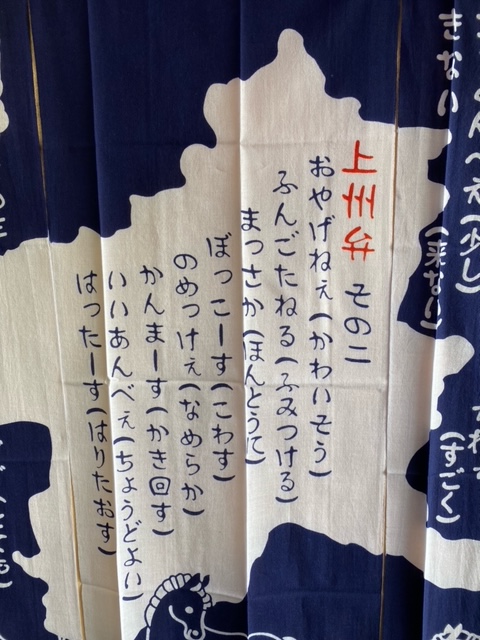 きない(来ない)
んべえ(少し)
(すごく)
上州弁 その二
おやげねぇ(かわいそう)
ふんごたねる(ふみつける)
まっさか(ほんとうに)
ぼっこーす(こわす)
のめっけぇ(なめらか)
かんまーす(かき回す)
いいあんべぇ(ちょうどよい)
はったーす(はりたおす)